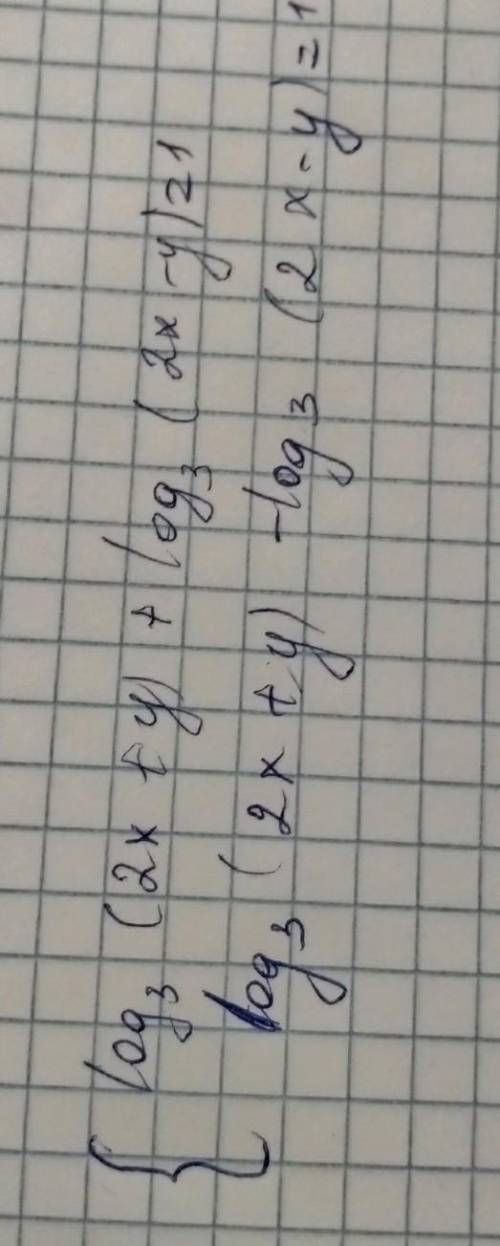 { log₃ (2x + y) + log₃ (2x - y) = 1
log₃ (2x + y) - log₃ (2x - y) = 1